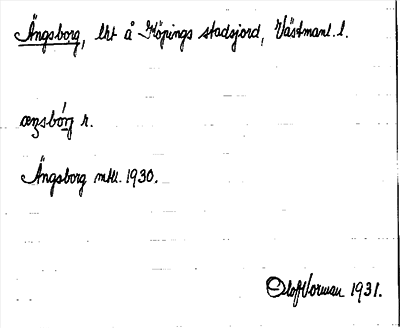 Ängsborg, lht å Köpings stadsjord, Västmanl. l.
æŋsbórj r.
Ängsborg mtl. 1930.
Olof Norman 1931.